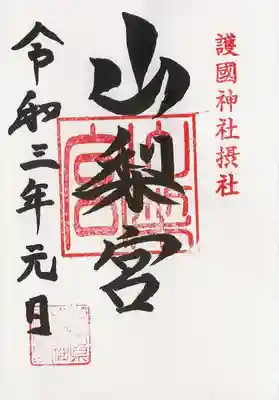 護國神社摂社
山梨宮
令和三年元日